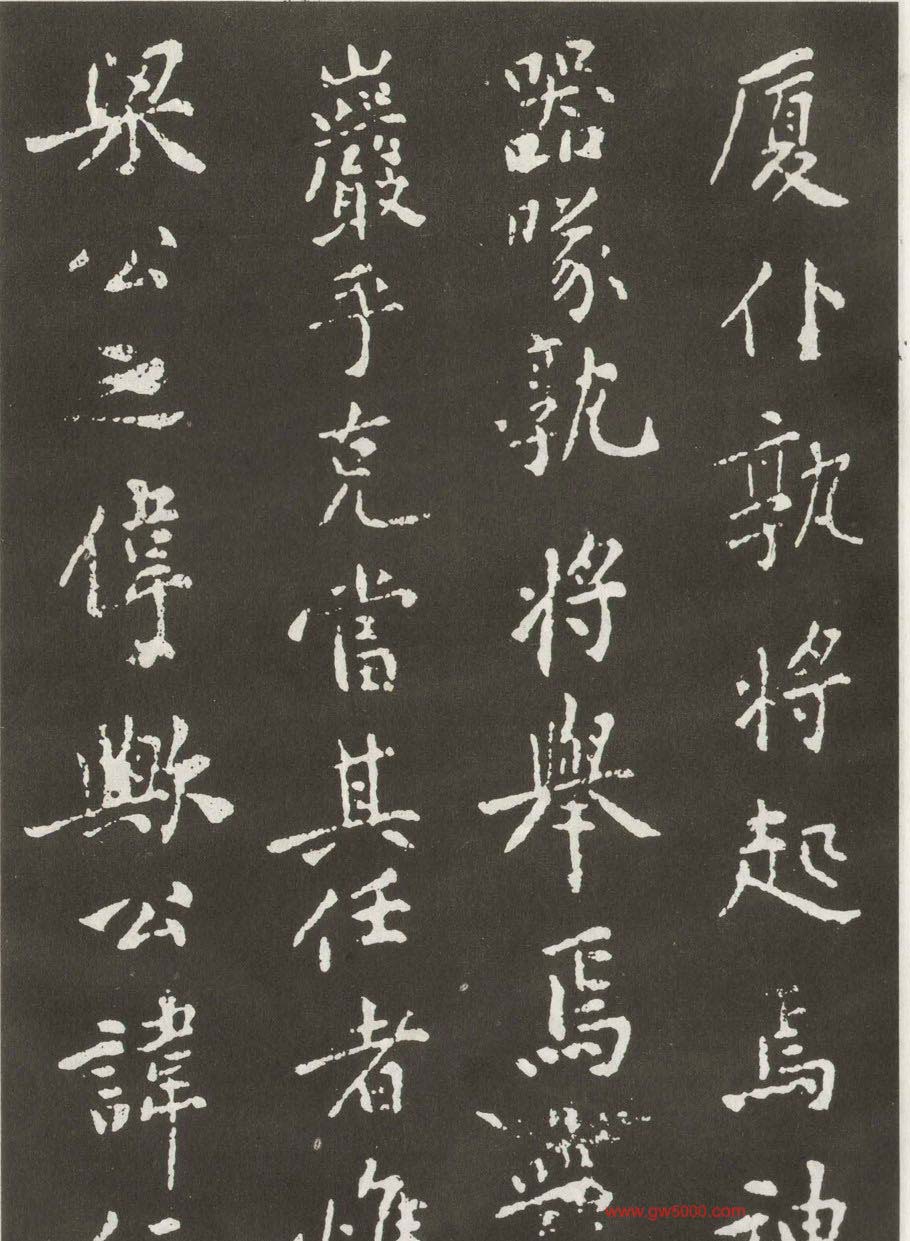 厦仆孰将起焉神
器隊孰将舉焉巖
巖乎克當其任者惟
梁公之偉歟公諱
www.gw5000.com